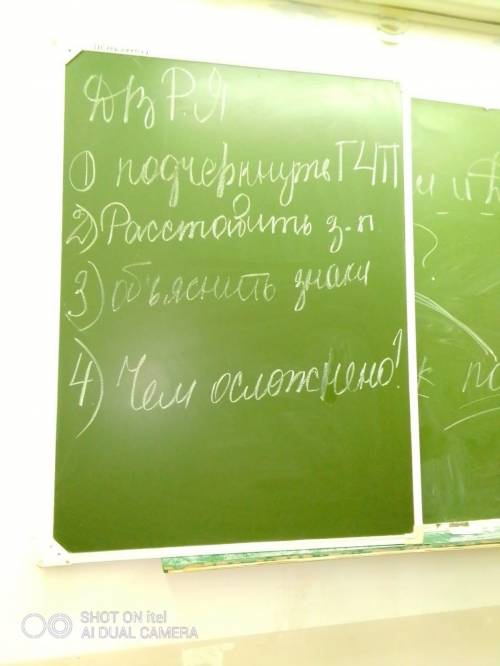 ДЗ Р.Я
① подчеркнуть ГЧП
2) Расставить з.п
3) объяснить знаки
4) Чем осложнено?
?
к по
SHOT ON itel
AI DUAL CAMERA